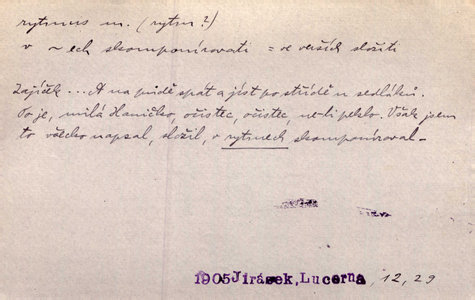 rytmus m. (rytm?)
v ~ech skomponírovati = ve verších složiti
Zajíček ... A na půdě spát a jíst po střídě u sedláků.
To je, milá Haničko, očistec, očistec, ne-li peklo. Však jsem
to všecko napsal, složil, v rytmech skomponíroval –
1905 Jirásek, Lucerna, 12, 29